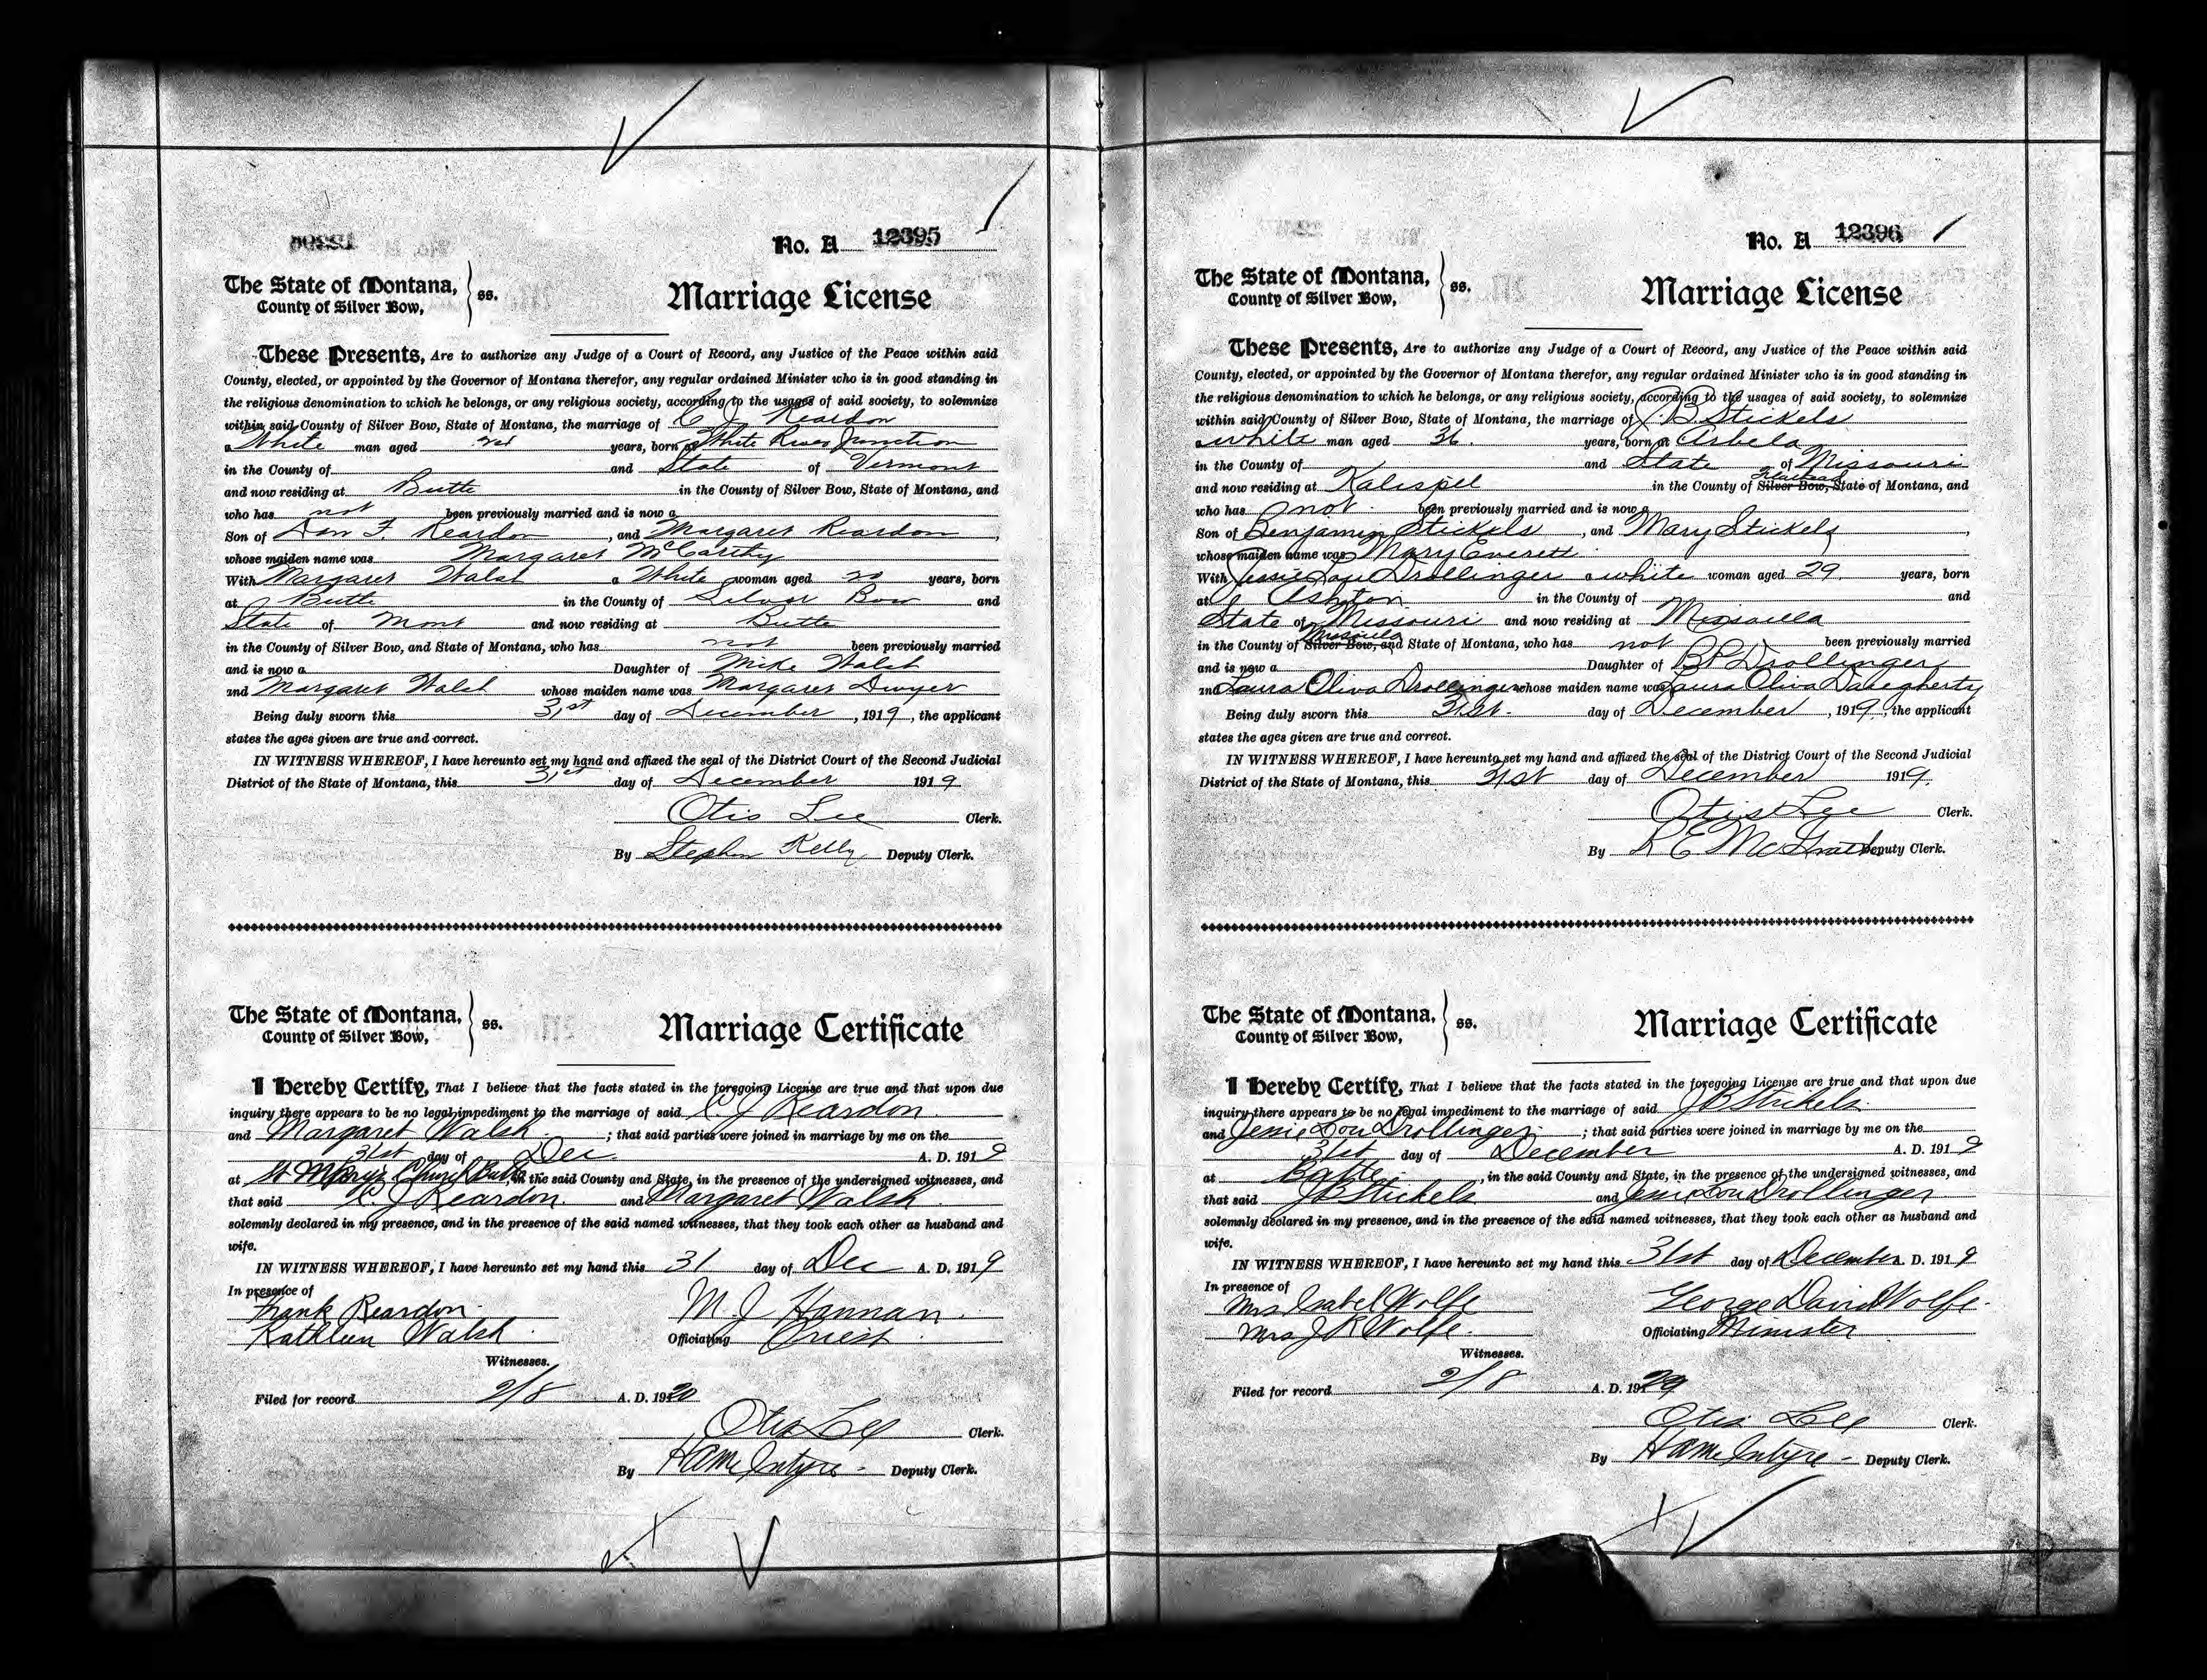 No. A 12395
The State of Montana,
County of Silver Bow,
ss.
Marriage License
These Presents, Are to authorize any Judge of a Court of Record, any Justice of the Peace within said
County, elected, or appointed by the Governor of Montana therefor, any regular ordained Minister who is in good standing in
the religious denomination to which he belongs, or any religious society, according to the usages of said society, to solemnize
within said County of Silver Bow, State of Montana, the marriage of C J Reardon
a White man aged years, born at White River Junction
in the County of and State of Vermont
and now residing at Butte in the County of Silver Bow, State of Montana, and
who has not been previously married and is now a
Son of Dan F. Reardon, and Margaret Reardon,
whose maiden name was Margaret McCarthy
With Margaret Walsh a White woman aged years, born
at Butte in the County of Silver Bow and
State of Mont and now residing at Butte
in the County of Silver Bow, and State of Montana, who has not been previously married
and is now a Daughter of Mike Walsh
and Margaret Walsh whose maiden name was Margaret Dwyer
Being duly sworn this 31st day of December, 1919, the applicant
states the ages given are true and correct.
IN WITNESS WHEREOF, I have hereunto set my hand and affixed the seal of the District Court of the Second Judicial
District of the State of Montana, this 31st day of December 1919
Otis Lee Clerk.
By Stephen Kelly Deputy Clerk.
The State of Montana,
County of Silver Bow,
ss.
Marriage Certificate
I Hereby Certify, That I believe that the facts stated in the foregoing License are true and that upon due
inquiry there appears to be no legal impediment to the marriage of said C. J Reardon
and Margaret Walsh; that said parties were joined in marriage by me on the
31st day of Dec. A. D. 1919
at St Mary's Church Butte, in the said County and State, in the presence of the undersigned witnesses, and
that said C. J Reardon and Margaret Walsh
solemnly declared in my presence, and in the presence of the said named witnesses, that they took each other as husband and
wife.
IN WITNESS WHEREOF, I have hereunto set my hand this 31 day of Dec A. D. 1919
In presence of
Frank Reardon
Kathleen Walsh
Witnesses.
M. J Hannan
Officiating Priest
Filed for record 2/8 A. D. 1920
Otis Lee Clerk.
By H A McIntyre Deputy Clerk.
No. A 12396
The State of Montana,
County of Silver Bow,
ss.
Marriage License
These Presents, Are to authorize any Judge of a Court of Record, any Justice of the Peace within said
County, elected, or appointed by the Governor of Montana therefor, any regular ordained Minister who is in good standing in
the religious denomination to which he belongs, or any religious society, according to the usages of said society, to solemnize
within said County of Silver Bow, State of Montana, the marriage of J. B. Stickels
a white man aged 36 years, born at Arbela
in the County of and State of Missouri
and now residing at Kalispel in the County of Flathead Silver Bow, State of Montana, and
who has not been previously married and is now a
Son of Benjamin Stickels, and Mary Stickels,
whose maiden name was Mary Everett
With Jessie Lou Drollinger a white woman aged 29 years, born
at Ashton in the County of and
State of Missouri and now residing at Missoula
in the County of Missoula Silver Bow, and State of Montana, who has not been previously married
and is now a Daughter of B P Drollinger
and Laura Oliva Drollinger whose maiden name was Laura Oliva Daugherty
Being duly sworn this 31st. day of December, 1919, the applicant
states the ages given are true and correct.
IN WITNESS WHEREOF, I have hereunto set my hand and affixed the seal of the District Court of the Second Judicial
District of the State of Montana, this 31st day of December 1919.
Otis Lee Clerk.
By R E McGrath Deputy Clerk.
The State of Montana,
County of Silver Bow,
ss.
Marriage Certificate
I Hereby Certify, That I believe that the facts stated in the foregoing License are true and that upon due
inquiry there appears to be no legal impediment to the marriage of said J B Stickels
and Jessie Lou Drollinger; that said parties were joined in marriage by me on the
31st day of December A. D. 1919
at Butte, in the said County and State, in the presence of the undersigned witnesses, and
that said J B Stickels and Jessie Lou Drollinger
solemnly declared in my presence, and in the presence of the said named witnesses, that they took each other as husband and
wife.
IN WITNESS WHEREOF, I have hereunto set my hand this 31st day of December A. D. 1919
In presence of
Mrs Isabel Wolfe
Mrs J R Wolfe
Witnesses.
George David Wolfe
Officiating Minister
Filed for record 2/8 A. D. 19
Otis Lee Clerk.
By H A McIntyre Deputy Clerk.